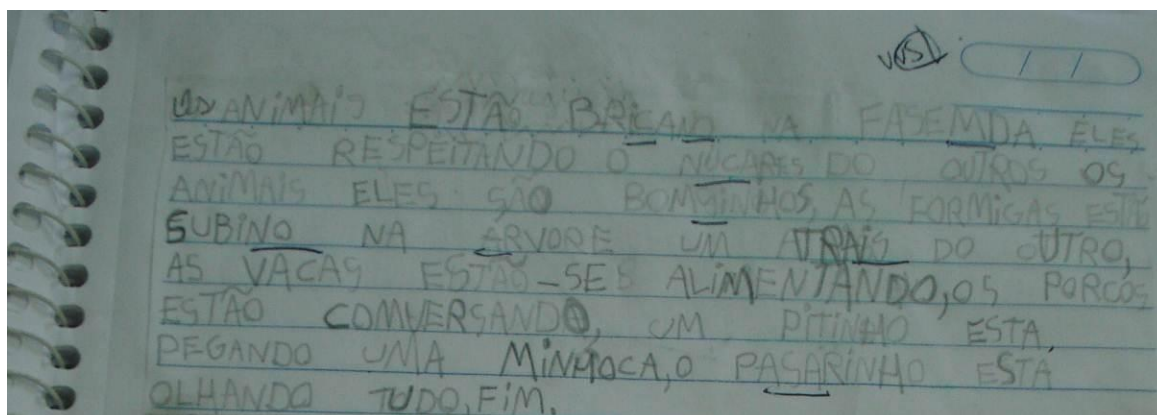 VIS
/ /
OS ANIMAIS ESTÃO BRICANO NA FASEMDA ELES
ESTÃO RESPEITANDO O NUCARES DO OUTROS OS
ANIMAIS ELES SÃO BOMNINHOS, AS FORMIGAS ESTÃ
SUBINO NA ARVORE UM ATRAIS DO OUTRO,
AS VACAS ESTÃO-SE ALIMENTANDO, OS PORCOS
ESTÃO COMVERSANDO, UM PITINHO ESTA,
PEGANDO UMA MINHOCA, O PASARINHO ESTÁ
OLHANDO TUDO, FIM.